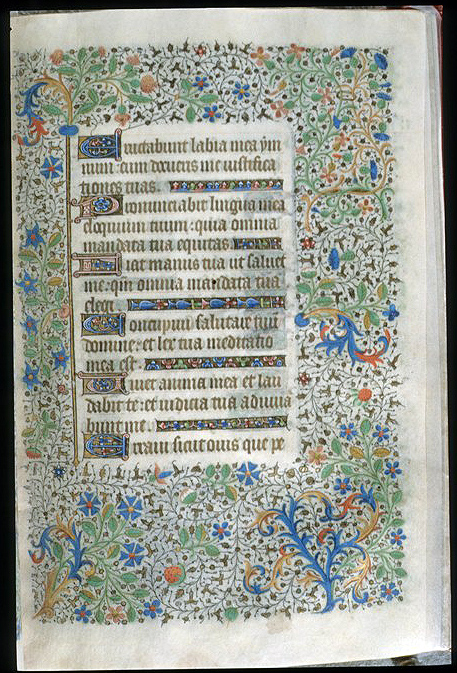 Eructabunt labia mea ym
num: cum docueris me iustifica
tiones tuas.
Pronunciabit lingua mea
eloquium tuum: quia omnia
mandata tua equitas.
Fiat manus tua ut saluet
me: qm̄ omnia mandata tua
elegi
Concupiui salutare tuū
domine: et lex tua meditatio
mea est.
Uiuet anima mea et lau
dabit te: et iudicia tua adiuua
bunt me.
Erraui sicut ouis que pe